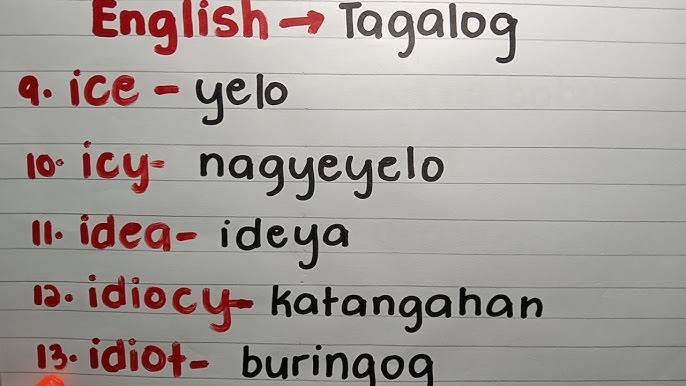 English → Tagalog
9. ice - yelo
10. icy- nagyeyelo
11. idea- ideya
12. idiocy- katangahan
13. idiot- buringog